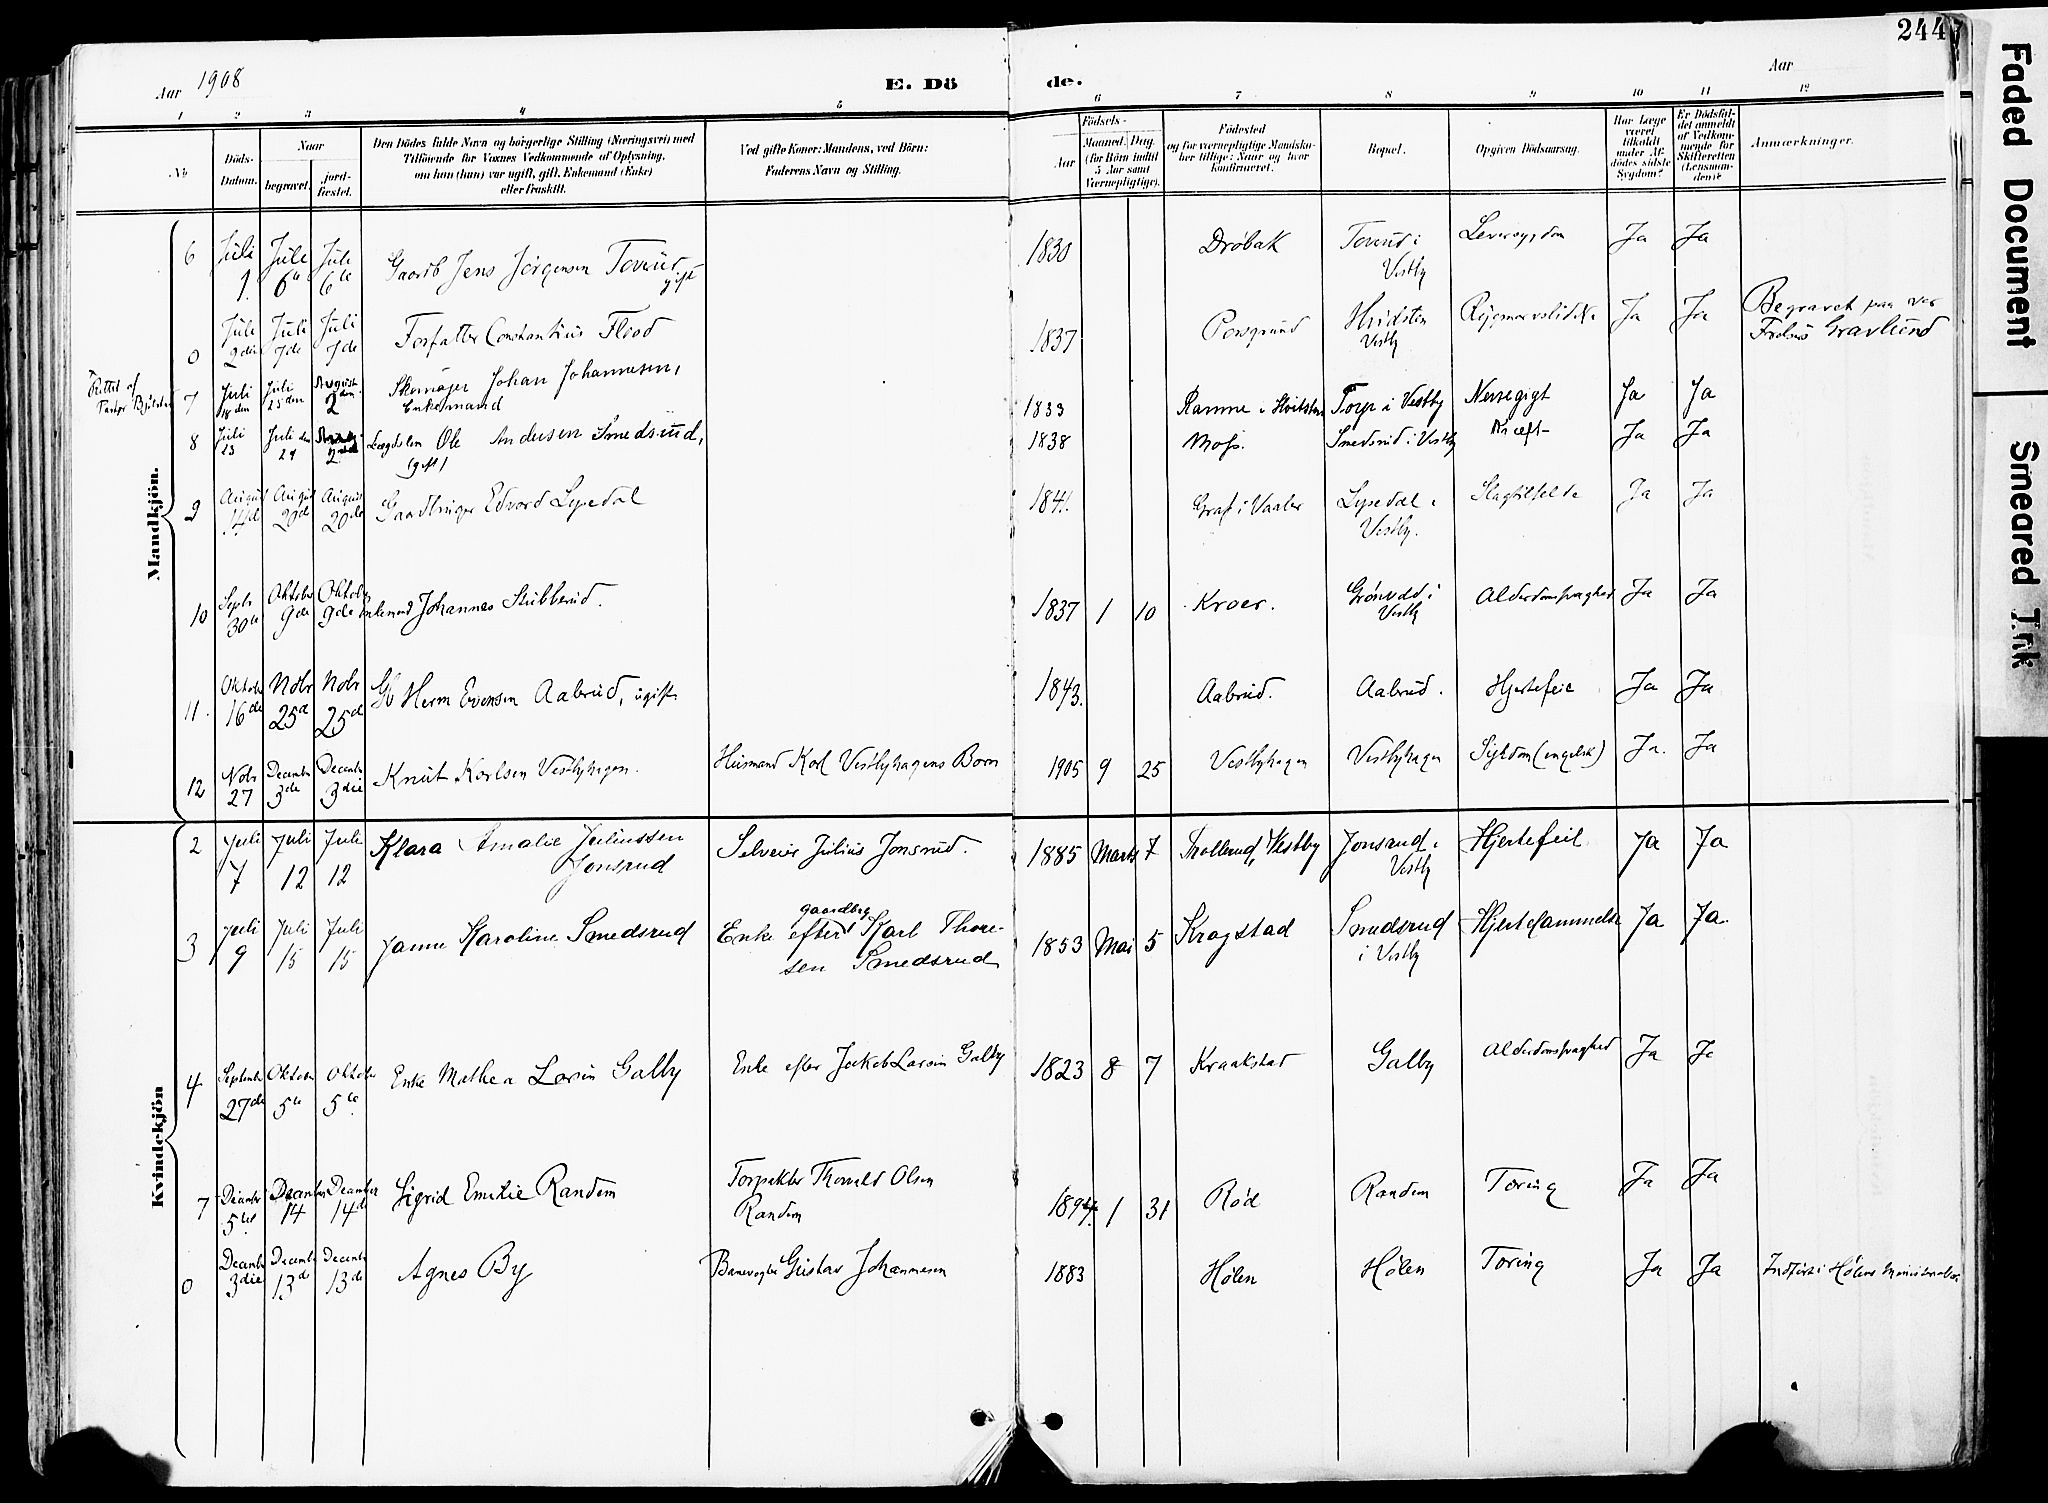 244
Faded Document
Smeared Ink
Aar 1908
E. Döde.
Aar
1 2 3 4 5 6 7 8 9 10 11 12
No
Döds-Datum.
Naar
begravet.
jordfæstet.
Den Dödes fulde Navn og borgerlige Stilling (Næringsvei) med
Tilföiende for Voxnes Vedkommende af Oplysning,
om han (hun) var ugift, gift, Enkemand (Enke)
eller fraskilt.
Ved gifte Koner: Mandens, ved Börn:
Faderens Navn og Stilling.
Födsels-
Aar
Maaned. Dag.
(for Börn indtil
5 Aar samt
Værnepligtige).
Födested
og for værnepligtige Mandskaber tillige: Naar og hvor
konfirmeret.
Bopæl.
Opgiven Dödsaarsag.
Har Læge
været
tilkaldt
under Afdödes sidste
Sygdom?
Er Dödsfaldet anmeldt
af Vedkommende for
Skifteretten
(Lensmanden)?
Anmærkninger.
Mandkjön.
6 Juli 1. Juli 6te Juli 6te Gaardb Jens Jørgensen Toverud gift 1830 Drøbak Toverud i Vestby Leversygdom Ja Ja
0 Juli 2den Juli 7de Juli 7de Forfatter Constantius Flood 1837 Porsgrund Hvidsten Vestby Rygmarvslidelse Ja Ja Begravet paa Vor Frelsers Gravlund
Rettet af
7 Juli 18den Juli 25den August 2den Skomager Johan Johannesen, Enkemand 1833 Ramme i Hvitsten Torp i Vestby Nervegigt Ja Ja
8 Juli 23 Juli den 29 2den Lægdslem Ole Andersen Smedsrud, (gift) 1838 Moss. Smedsrud i Vestby Kræft Ja Ja
9 August 14de August 20de August 20de Edvard Lysedal 1841. Graf i Vaaler Lysedal i Vestby. Slagtilfelde Ja Ja
10 Septr 30te Oktober 9de Oktober 9de Enkemand Johannes Stubberud. 1837 1 10 Kroer. Grønvold i Vestby Alderdomsvaghed Ja Ja
11. Oktober 16de Nobr 25de Nobr 25de Gb Herm Evensen Aabrud, ugift 1843. Aabrud. Aabrud. Hjertefeil Ja Ja
12 Nobr 27 Decembr 3die Decembr 3die Knut Karlsen Vestbyhagen. Husmand Karl Vestbyhagens Barn 1905 9 25 Vestbyhagen Vestbyhagen Sygdom (engelsk) Ja. Ja
Kvindekjön
2 Juli 7 Juli 12 Juli 12 Klara Amalie Juliussen Jonsrud Selveier Julius Jonsrud. 1885 Marts 7 Trollerud, Vestby Jonsrud i Vestby Hjertefeil Ja Ja
3 Juli 9 Juli 15 Juli 15 Janne Karoline Smedsrud Enke efter gaardbrg Karl Thoresen Smedsrud 1853 Mai 5 Kragstad Smedsrud i Vestby Hjertelammelse Ja Ja.
4 September 27de Oktober 5te Oktober 5te Enke Mathea Larsen Galby Enke efter Jakob Larsen Galby 1823 8 7 Kraakstad Galby Alderdomsvaghed Ja Ja
7 December 5te December 14 December 14de Sigrid Emilie Randem Thorvald Olsen Randem 1894. 1 31 Rød Randem Tæring Ja Ja
0 Decembr 3die Decembr 13de Decembr 13de Agnes By Banevogter Gustav Johannesen 1883 Hølen Hølen Tæring Ja Ja Indført i Hølens Ministerialbog